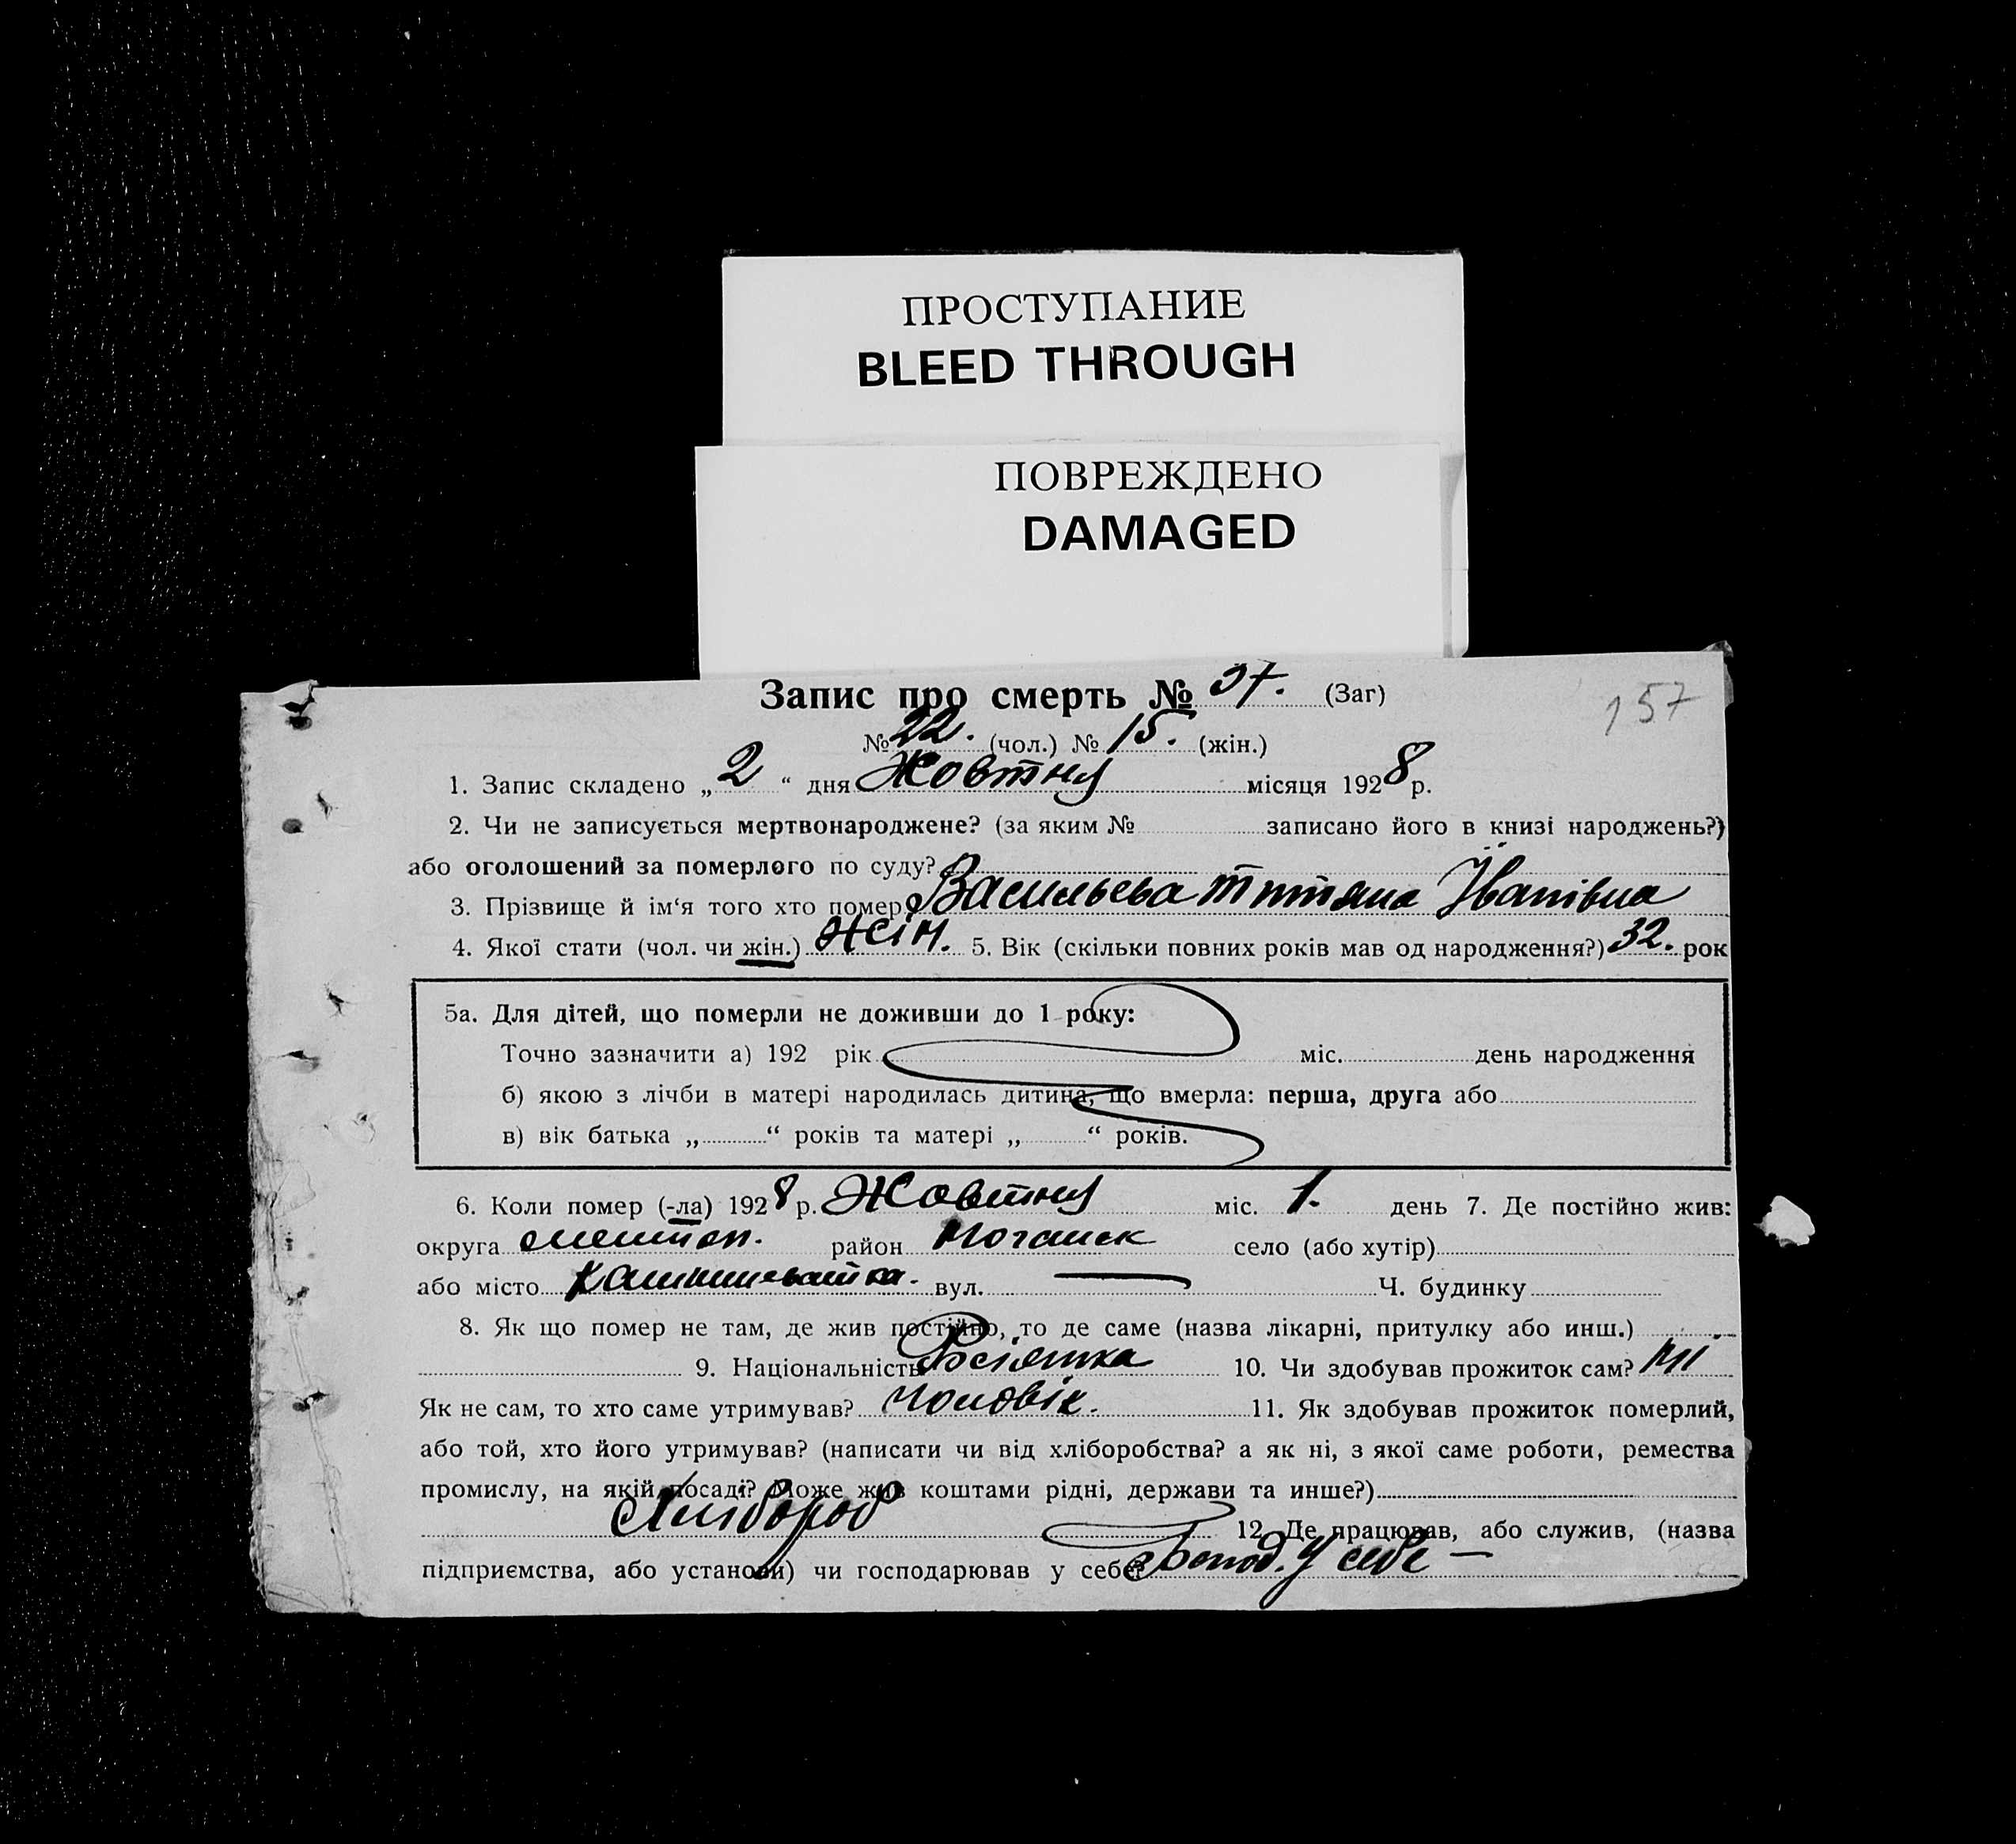 ПРОСТУПАНИЕ
BLEED THROUGH
ПОВРЕЖДЕНО
DAMAGED
Запис про смерть № 37. (Заг)
157
№ 22. (чол.) № 15. (жін.)
1. Запис складено „ 2 “ дня Жовтня місяця 1928 р.
2. Чи не записується мертвонароджене? (за яким № записано його в книзі народжень?)
або оголошений за померлого по суду?
3. Прізвище й ім‘я того хто помер? Васильева Титяна Іванівна
4. Якої стати (чол. чи жін.) Жін. 5. Вік (скільки повних років мав од народження?) 32. рок
5а. Для дітей, що померли не доживши до 1 року:
Точно зазначити а) 192 рік міс. день народження
б) якою з лічби в матері народилась дитина, що вмерла: перша, друга або
в) вік батька „ “ років та матері „ “ років.
6. Коли помер (-ла) 1928 р. Жовтня міс. 1. день 7. Де постійно жив:
округа район село (або хутір)
або місто вул. — Ч. будинку
8. Як що помер не там, де жив постійно, то де саме (назва лікарні, притулку або инш.)
9. Національність Росіянка 10. Чи здобував прожиток сам? Ні
Як не сам, то хто саме утримував? Чоловік. 11. Як здобував прожиток померлий,
або той, хто його утримував? (написати чи від хліборобства? а як ні, з якої саме роботи, ремества
промислу, на якій посаді? Може жив коштами рідні, держави та инше?)
Хлібороб 12. Де працював, або служив, (назва
підприємства, або установи) чи господарював у себе? у себе —